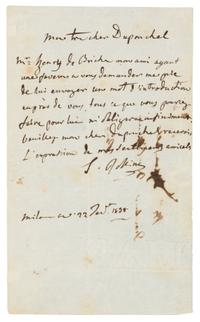 Mon très cher Duponchel
Mr Henry de Briche mon ami ayant
une faveur a vous demander me prie
de lui envoyer un mot d'introduction
auprès de vous, tous ce que vous pourrez
faire pour lui m'obligera infiniment
veuillez mon cher Duponchel recevoir
l'expression de mes sentiments amicals
Milan ce 22 1838